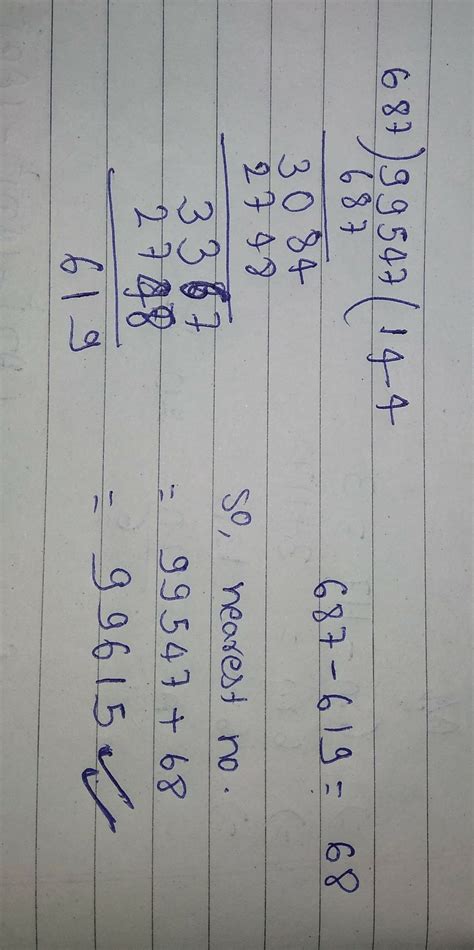 687)99547(144
687
3084
2748
3367
2748
619
687-619 = 68
So, nearest no.
= 99547+68
= 99615